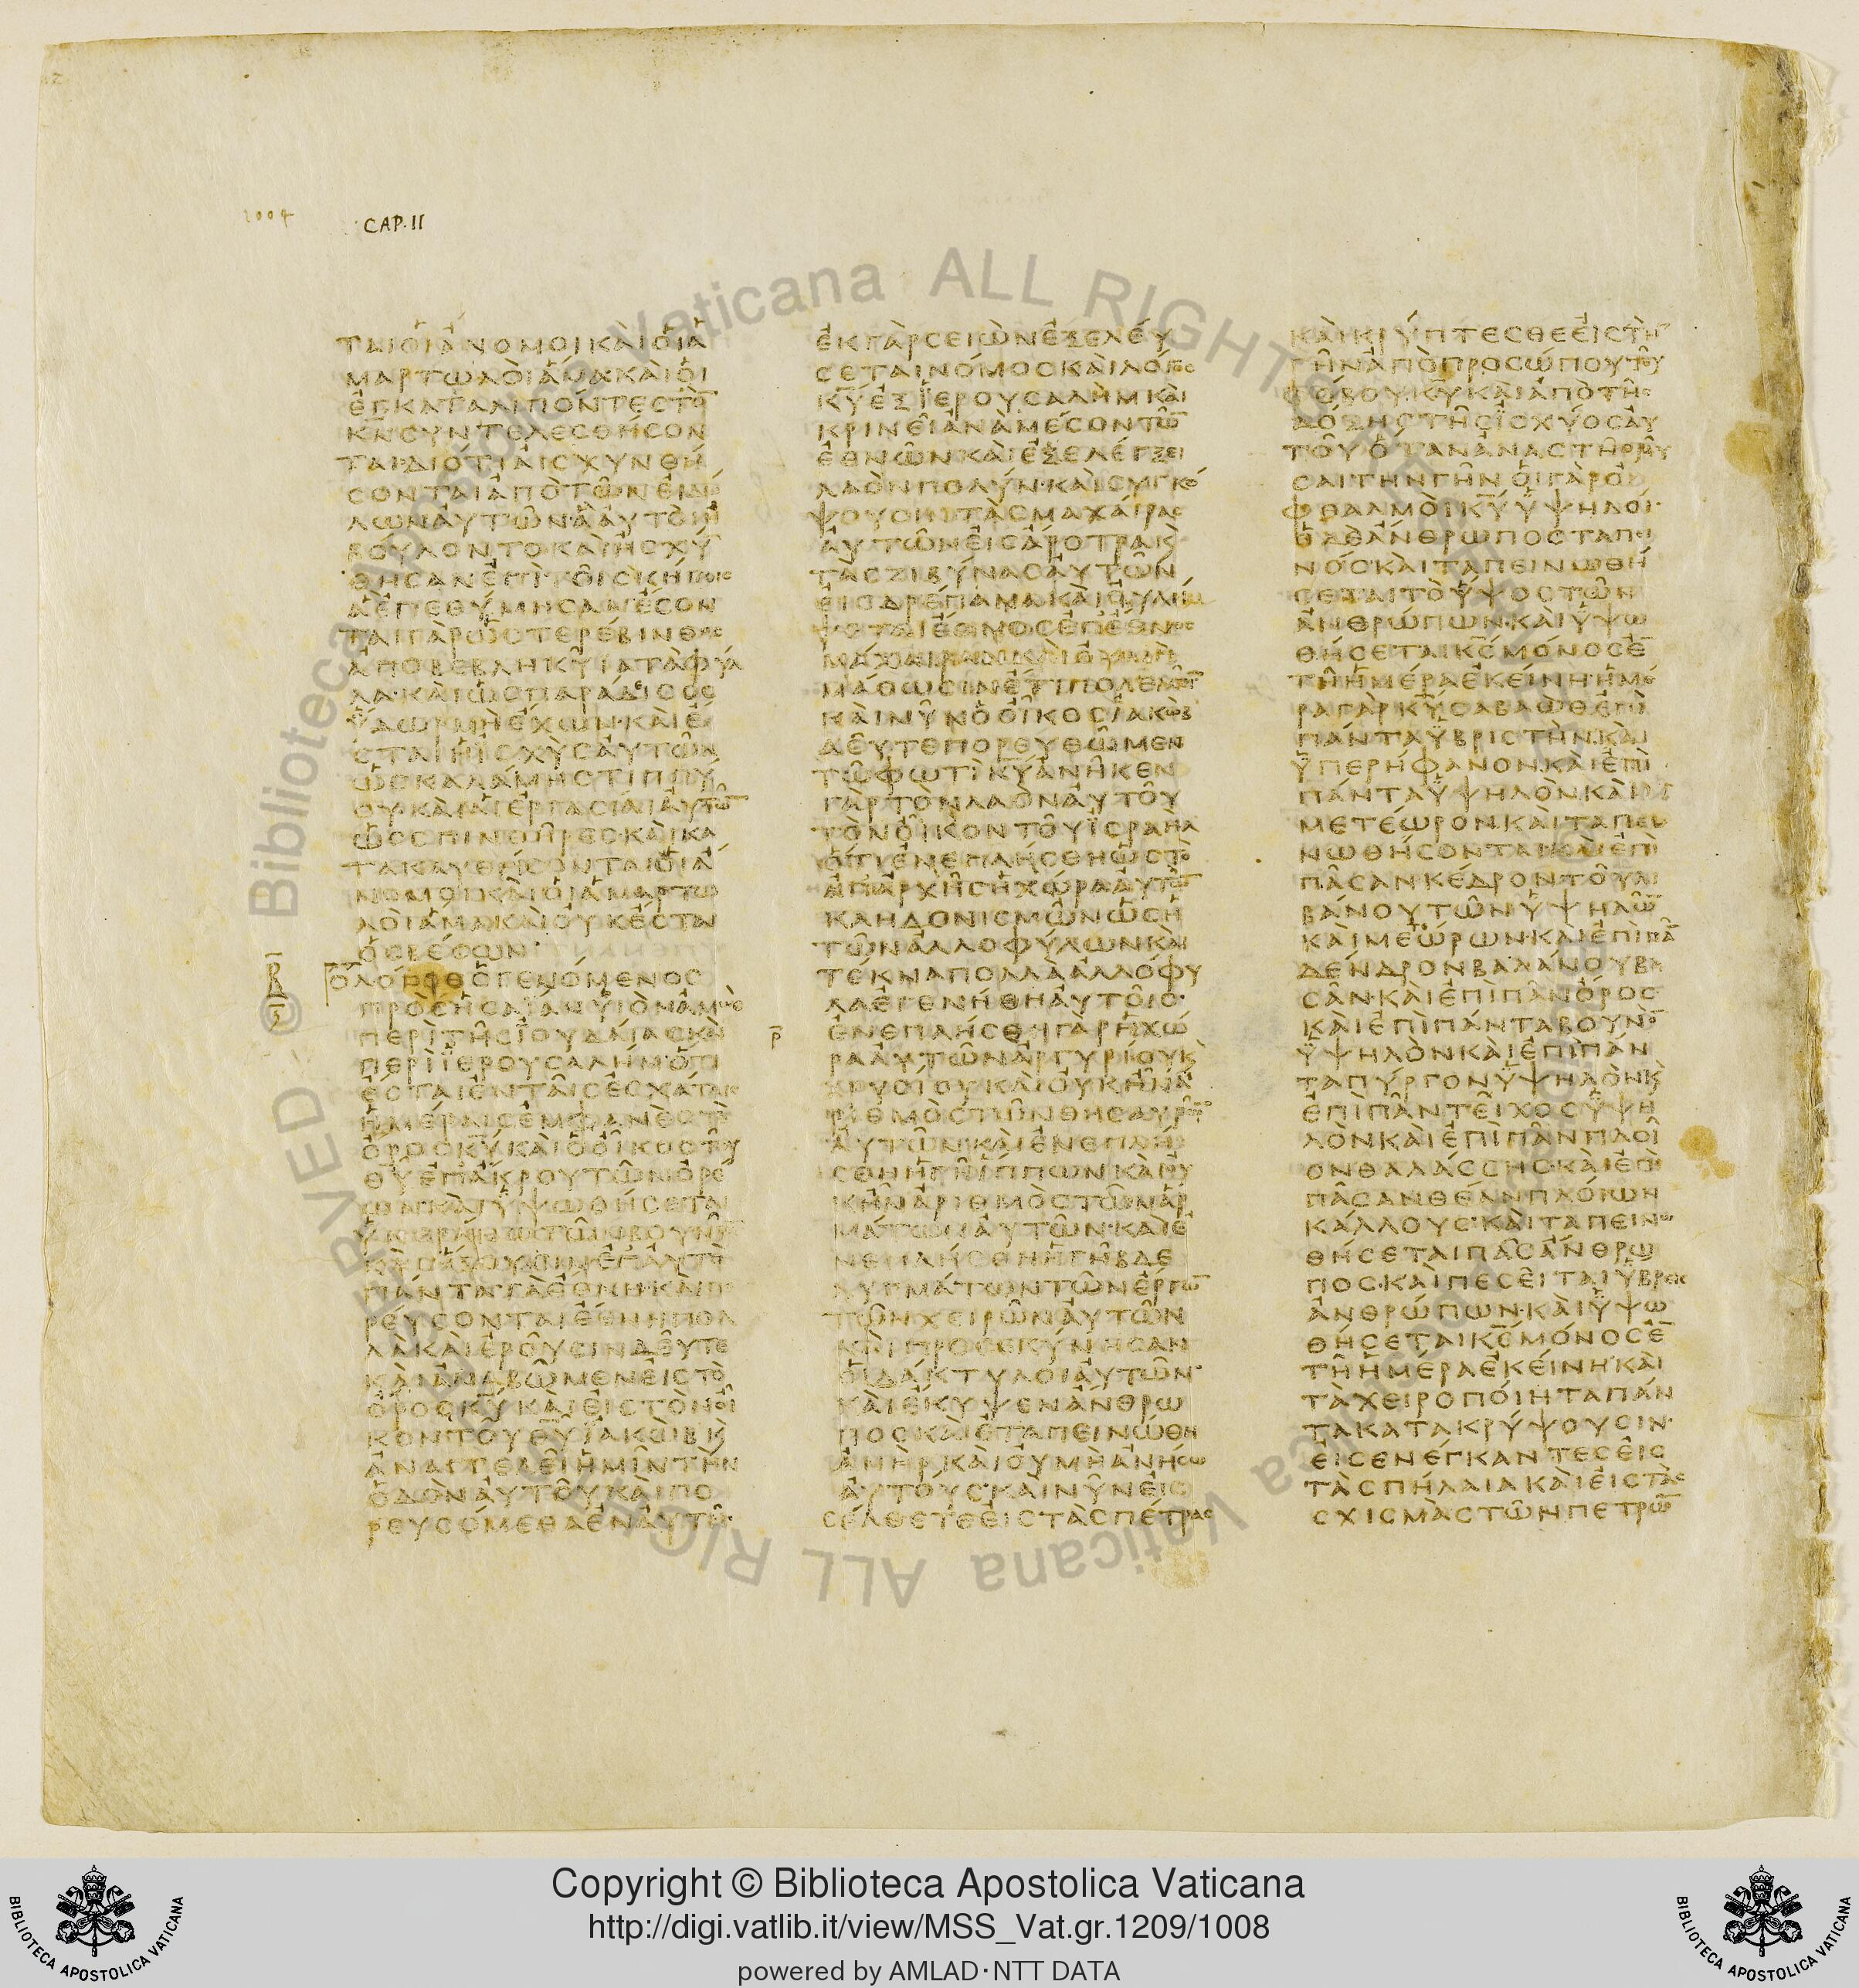 1004
CAP. II
ΤΑΙΟΙΑΝΟΜΟΙΚΑΙΟΙΑ
ΜΑΡΤΩΛΟΙΑΜΑΚΑΙΟΙ
ΕΓΚΑΤΑΛΙΠΟΝΤΕΣΤΟ̅
Κ̅Ν̅ΣΥΝΤΕΛΕΣΘΗΣΟΝ
ΤΑΙ·ΔΙΟΤΙΑΙΣΧΥΝΘΗ
ΣΟΝΤΑΙΑΠΟΤΩΝΕΙΔΩ
ΛΩΝΑΥΤΩΝΑΑΥΤΟΙΗ
ΒΟΥΛΟΝΤΟΚΑΙΗΣΧΥ̅
ΘΗΣΑΝΕΠΙΤΟΙΣΚΗΠΟΙΣ
ΑΕΠΕΘΥΜΗΣΑΝΕΣΟΝ
ΤΑΙΓΑΡΩΣΤΕΡΕΒΙΝΘΟΣ
ΑΠΟΒΕΒΛΗΚΥΙΑΤΑΦΥΛ
ΛΑ·ΚΑΙΩΣΠΑΡΑΔΕΙΣΟΣ
ΥΔΩΡΜΗΕΧΩΝ·ΚΑΙΕ
ΣΤΑΙΗΙΣΧΥΣΑΥΤΩΝ
ΩΣΚΑΛΑΜΗΣΤΙΠΠΥ
ΟΥΚΑΙΑΙΕΡΓΑΣΙΑΙΑΥΤΩ̅
ΩΣΣΠΙΝΘΗΡΕΣ·ΚΑΙΚΑ
ΤΑΚΑΥΘΗΣΟΝΤΑΙΟΙΑ
ΝΟΜΟΙΚΑΙΟΙΑΜΑΡΤΩ
ΛΟΙΑΜΑΚΑΙΟΥΚΕΣΤΑΙ
ΟΣΒΕΣΩΝ·
Β̅ ΟΛΟΓΟΣΟΓΕΝΟΜΕΝΟΣ
ΠΡΟΣΗΣΑΙΑΝΥΙΟΝΑΜΩΣ
ΠΕΡΙΤΗΣΙΟΥΔΑΙΑΣΚΑΙ
ΠΕΡΙΙΕΡΟΥΣΑΛΗΜ·ΟΤΙ
ΕΣΤΑΙΕΝΤΑΙΣΕΣΧΑΤΑΙΣ
ΗΜΕΡΑΙΣΕΜΦΑΝΕΣΤΟ
ΟΡΟΣΚ̅Υ̅ΚΑΙΟΟΙΚΟΣΤΟΥ
Θ̅Υ̅ΕΠΑΚΡΟΥΤΩΝΟΡΕ
ΩΝΚΑΙΥΨΩΘΗΣΕΤΑΙ
ΥΠΕΡΑΝΩΤΩΝΒΟΥΝΩ̅
ΠΑΝΤΑΤΑΕΘΝΗ·ΚΑΙΠΟ
ΡΕΥΣΟΝΤΑΙΕΘΝΗΠΟΛ
ΛΑΚΑΙΕΡΟΥΣΙΝΔΕΥΤΕ
ΚΑΙΑΝΑΒΩΜΕΝΕΙΣΤΟ
ΟΡΟΣΚ̅Υ̅ΚΑΙΕΙΣΤΟΝΟΙ
ΚΟΝΤΟΥΘ̅Υ̅ΙΑΚΩΒΚ
ΑΝΑΓΓΕΛΕΙΗΜΙΝΤΗΝ
ΟΔΟΝΑΥΤΟΥΚΑΙΠΟ
ΡΕΥΣΟΜΕΘΑΕΝΑΥΤΗ·
ΕΚΓΑΡΣΕΙΩΝΕΞΕΛΕΥ
ΣΕΤΑΙΝΟΜΟΣΚΑΙΛΟΓΟΣ
Κ̅Υ̅ΕΞΙΕΡΟΥΣΑΛΗΜΚΑΙ
ΚΡΙΝΕΙΑΝΑΜΕΣΟΝΤΩ̅
ΕΘΝΩΝΚΑΙΕΞΕΛΕΓΞΕΙ
ΛΑΟΝΠΟΛΥΝ·ΚΑΙΣΥΓΚΟ
ΨΟΥΣΙΝΤΑΣΜΑΧΑΙΡΑΣ
ΑΥΤΩΝΕΙΣΑΡΟΤΡΑΚ
ΤΑΣΖΙΒΥΝΑΣΑΥΤΩΝ
ΕΙΣΔΡΕΠΑΝΑΚΑΙΟΥΛΗΜ
ΨΕΤΑΙΕΘΝΟΣΕΠΕΘΝΟΣ
ΜΑΧΑΙΡΑΝΚΑΙΟΥΜΗ
ΜΑΘΩΣΙΝΕΤΙΠΟΛΕΜΕΙ̅
ΚΑΙΝΥΝΟΟΙΚΟΣΙΑΚΩΒ
ΔΕΥΤΕΠΟΡΕΥΘΩΜΕΝ
ΤΩΦΩΤΙΚ̅Υ̅ΑΝΗΚΕΝ
ΓΑΡΤΟΝΛΑΟΝΑΥΤΟΥ
ΤΟΝΟΙΚΟΝΤΟΥΙΣΡΑΗΛ
ΟΤΙΕΝΕΠΛΗΣΘΗΩΣΤΟ
ΑΠΑΡΧΗΣΗΧΩΡΑΑΥΤΩ̅
ΚΛΗΔΟΝΙΣΜΩΝΩΣΗ
ΤΩΝΑΛΛΟΦΥΛΩΝΚΑΙ
ΤΕΚΝΑΠΟΛΛΑΑΛΛΟΦΥ
ΛΑΕΓΕΝΗΘΗΑΥΤΟΙΣ·
ΕΝΕΠΛΗΣΘΗΓΑΡΗΧΩ
ΡΑΑΥΤΩΝΑΡΓΥΡΙΟΥΚ
ΧΡΥΣΙΟΥΚΑΙΟΥΚΗΝΑ
ΡΙΘΜΟΣΤΩΝΘΗΣΑΥΡΩ̅
ΑΥΤΩΝ·ΚΑΙΕΝΕΠΛΗ
ΣΘΗΗΓΗΙΠΠΩΝΚΑΙΟΥ
ΚΗΝΑΡΙΘΜΟΣΤΩΝΑΡ
ΜΑΤΩΝΑΥΤΩΝ·ΚΑΙΕ
ΝΕΠΛΗΣΘΗΗΓΗΒΔΕ
ΛΥΓΜΑΤΩΝΤΩΝΕΡΓΩ̅
ΤΩΝΧΕΙΡΩΝΑΥΤΩΝ
ΚΑΙΠΡΟΣΕΚΥΝΗΣΑΝ
ΟΙΔΑΚΤΥΛΟΙΑΥΤΩΝ·
ΚΑΙΕΚΥΨΕΝΑΝΘΡΩ
ΠΟΣΚΑΙΕΤΑΠΕΙΝΩΘΗ
ΑΝΗΡ·ΚΑΙΟΥΜΗΑΝΗΣΩ
ΑΥΤΟΥΣ·ΚΑΙΝΥΝΕΙΣ
ΕΛΘΕΤΕΕΙΣΤΑΣΠΕΤΡΑΣ
ΚΑΙΚΡΥΠΤΕΣΘΕΕΙΣΤΗ̅
ΓΗΝΑΠΟΠΡΟΣΩΠΟΥΤΟΥ
ΦΟΒΟΥ·Κ̅Υ̅ΚΑΙΑΠΟΤΗΣ
ΔΟΞΗΣΤΗΣΙΣΧΥΟΣΑΥ
ΤΟΥΟΤΑΝΑΝΑΣΤΗΘΡΑΥ
ΣΑΙΤΗΝΓΗΝΟΙΓΑΡΟ
ΦΘΑΛΜΟΙΚ̅Υ̅ΥΨΗΛΟΙ·
ΟΔΕΑΝΘΡΩΠΟΣΤΑΠΕΙ
ΝΟΣ·ΚΑΙΤΑΠΕΙΝΩΘΗ
ΣΕΤΑΙΤΟΥΨΟΣΤΩΝ
ΑΝΘΡΩΠΩΝ·ΚΑΙΥΨΩ
ΘΗΣΕΤΑΙΚ̅Σ̅ΜΟΝΟΣΕ̅
ΤΗΗΜΕΡΑΕΚΕΙΝΗ·ΗΜΕ
ΡΑΓΑΡΚ̅Υ̅ΣΑΒΑΩΘΕΠΙ
ΠΑΝΤΑΥΒΡΙΣΤΗΝ·ΚΑΙ
ΥΠΕΡΗΦΑΝΟΝ·ΚΑΙΕΠΙ
ΠΑΝΤΑΥΨΗΛΟΝΚΑΙ
ΜΕΤΕΩΡΟΝ·ΚΑΙΤΑΠΕΙ
ΝΩΘΗΣΟΝΤΑΙΚΑΙΕΠΙ
ΠΑΣΑΝΚΕΔΡΟΝΤΟΥΛΙ
ΒΑΝΟΥΤΩΝΥΨΗΛΩ̅
ΚΑΙΜΕΤΕΩΡΩΝ·ΚΑΙΕΠΙΠΑ̅
ΔΕΝΔΡΟΝΒΑΛΑΝΟΥΒΑ
ΣΑΝ·ΚΑΙΕΠΙΠΑΝΟΡΟΣ
ΚΑΙΕΠΙΠΑΝΤΑΒΟΥΝΟ̅
ΥΨΗΛΟΝΚΑΙΕΠΙΠΑΝ
ΤΑΠΥΡΓΟΝΥΨΗΛΟΝΚ
ΕΠΙΠΑΝΤΕΙΧΟΣΥΨΗ
ΛΟΝΚΑΙΕΠΙΠΑΝΠΛΟΙ
ΟΝΘΑΛΑΣΣΗΣ·ΚΑΙΕΠΙ
ΠΑΣΑΝΘΕΑΝΠΛΟΙΩΝ
ΚΑΛΛΟΥΣ·ΚΑΙΤΑΠΕΙΝΩ
ΘΗΣΕΤΑΙΠΑΣΑΝΘΡΩ
ΠΟΣ·ΚΑΙΠΕΣΕΙΤΑΙΥΒΡΙΣ
ΑΝΘΡΩΠΩΝ·ΚΑΙΥΨΩ
ΘΗΣΕΤΑΙΚ̅Σ̅ΜΟΝΟΣΕ̅
ΤΗΗΜΕΡΑΕΚΕΙΝΗ·ΚΑΙ
ΤΑΧΕΙΡΟΠΟΙΗΤΑΠΑΝ
ΤΑΚΑΤΑΚΡΥΨΟΥΣΙΝ·
ΕΙΣΕΝΕΓΚΑΝΤΕΣΕΙΣ
ΤΑΣΠΗΛΑΙΑΚΑΙΕΙΣΤΑΣ
ΣΧΙΣΜΑΣΤΩΝΠΕΤΡΩ̅
© Biblioteca Apostolica Vaticana ALL RIGHTS RESERVED
Copyright © Biblioteca Apostolica Vaticana
http://digi.vatlib.it/view/MSS_Vat.gr.1209/1008
powered by AMLAD·NTT DATA
BIBLIOTECA APOSTOLICA VATICANA
BIBLIOTECA APOSTOLICA VATICANA